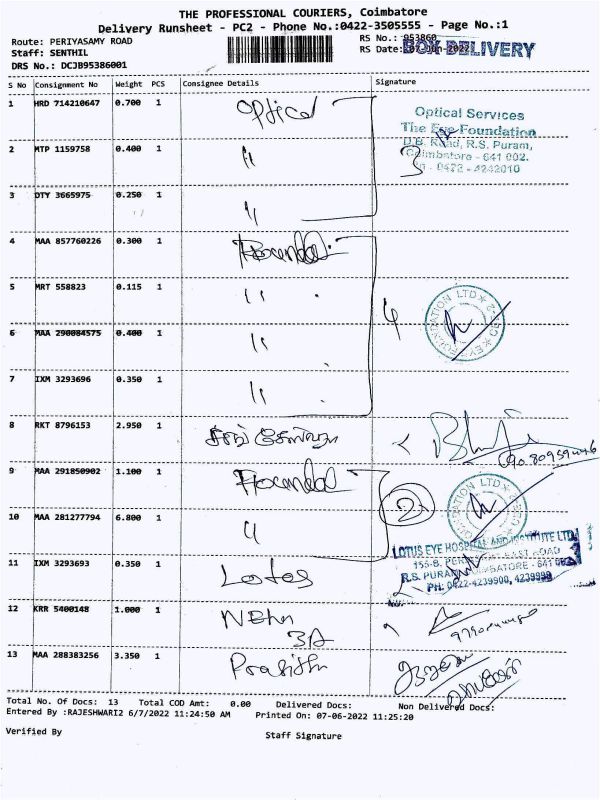 THE PROFESSIONAL COURIERS, Coimbatore
Delivery Runsheet - PC2 - Phone No.:0422-3505555 - Page No.:1
Route: PERIYASAMY ROAD
RS No.: 953860
Staff: SENTHIL
RS Date: 07-Jun-2022
BOX DELIVERY
DRS No.: DCJB95386001
S No Consignment No Weight PCS Consignee Details Signature
1 HRD 714210647 0.700 1 Optical
Optical Services
The Eye Foundation
D.B. Road, R.S. Puram,
Coimbatore - 641 002.
Ph - 0422 - 4242010
2 MTP 1159758 0.400 1 "
3
3 DTY 3665975 0.250 1 "
4 MAA 857760226 0.300 1
5 MRT 558823 0.115 1 "
4
6 MAA 290084575 0.400 1 "
7 IXM 3293696 0.350 1 "
8 RKT 8796153 2.950 1
9 MAA 291850902 1.100 1
2
10 MAA 281277794 6.800 1 "
LOTUS EYE HOSPITAL AND INSTITUTE LTD.
155-B, PERIYASAMY EAST ROAD
R.S. PURAM, COIMBATORE - 641 002
PH: 0422-4239900, 4239999
11 IXM 3293693 0.350 1 Lotus
12 KRR 5400148 1.000 1 NEhru
3A
13 MAA 288383256 3.350 1
Total No. Of Docs: 13 Total COD Amt: 0.00 Delivered Docs: Non Delivered Docs:
Entered By :RAJESHWARI2 6/7/2022 11:24:50 AM Printed On: 07-06-2022 11:25:20
Verified By
Staff Signature